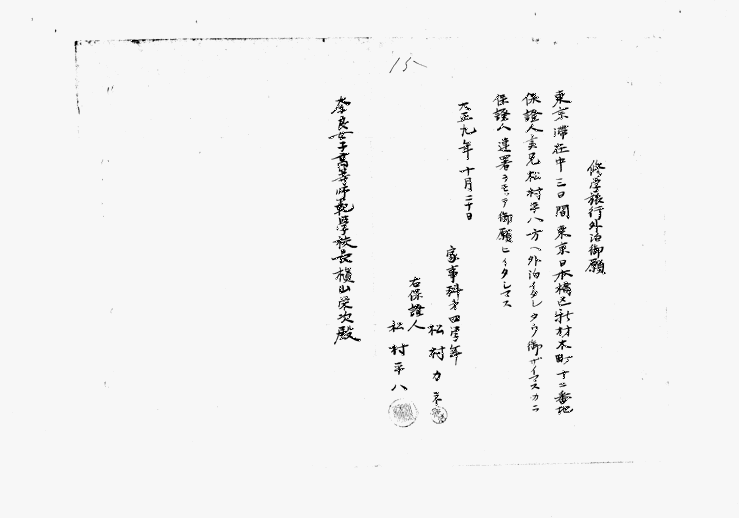 修学旅行外泊御願
東京滞在中三日間東京日本橋区新材木町十二番地
保證人実兄松村平八方ヘ外泊イタシタウ御ザイマスカラ
保證人連署ヲモッテ御願ヒイタシマス
大正九年十月二十日
家事科第四学年
松村力
右保證人
松村平八
奈良女子高等師範学校長槇山栄次殿